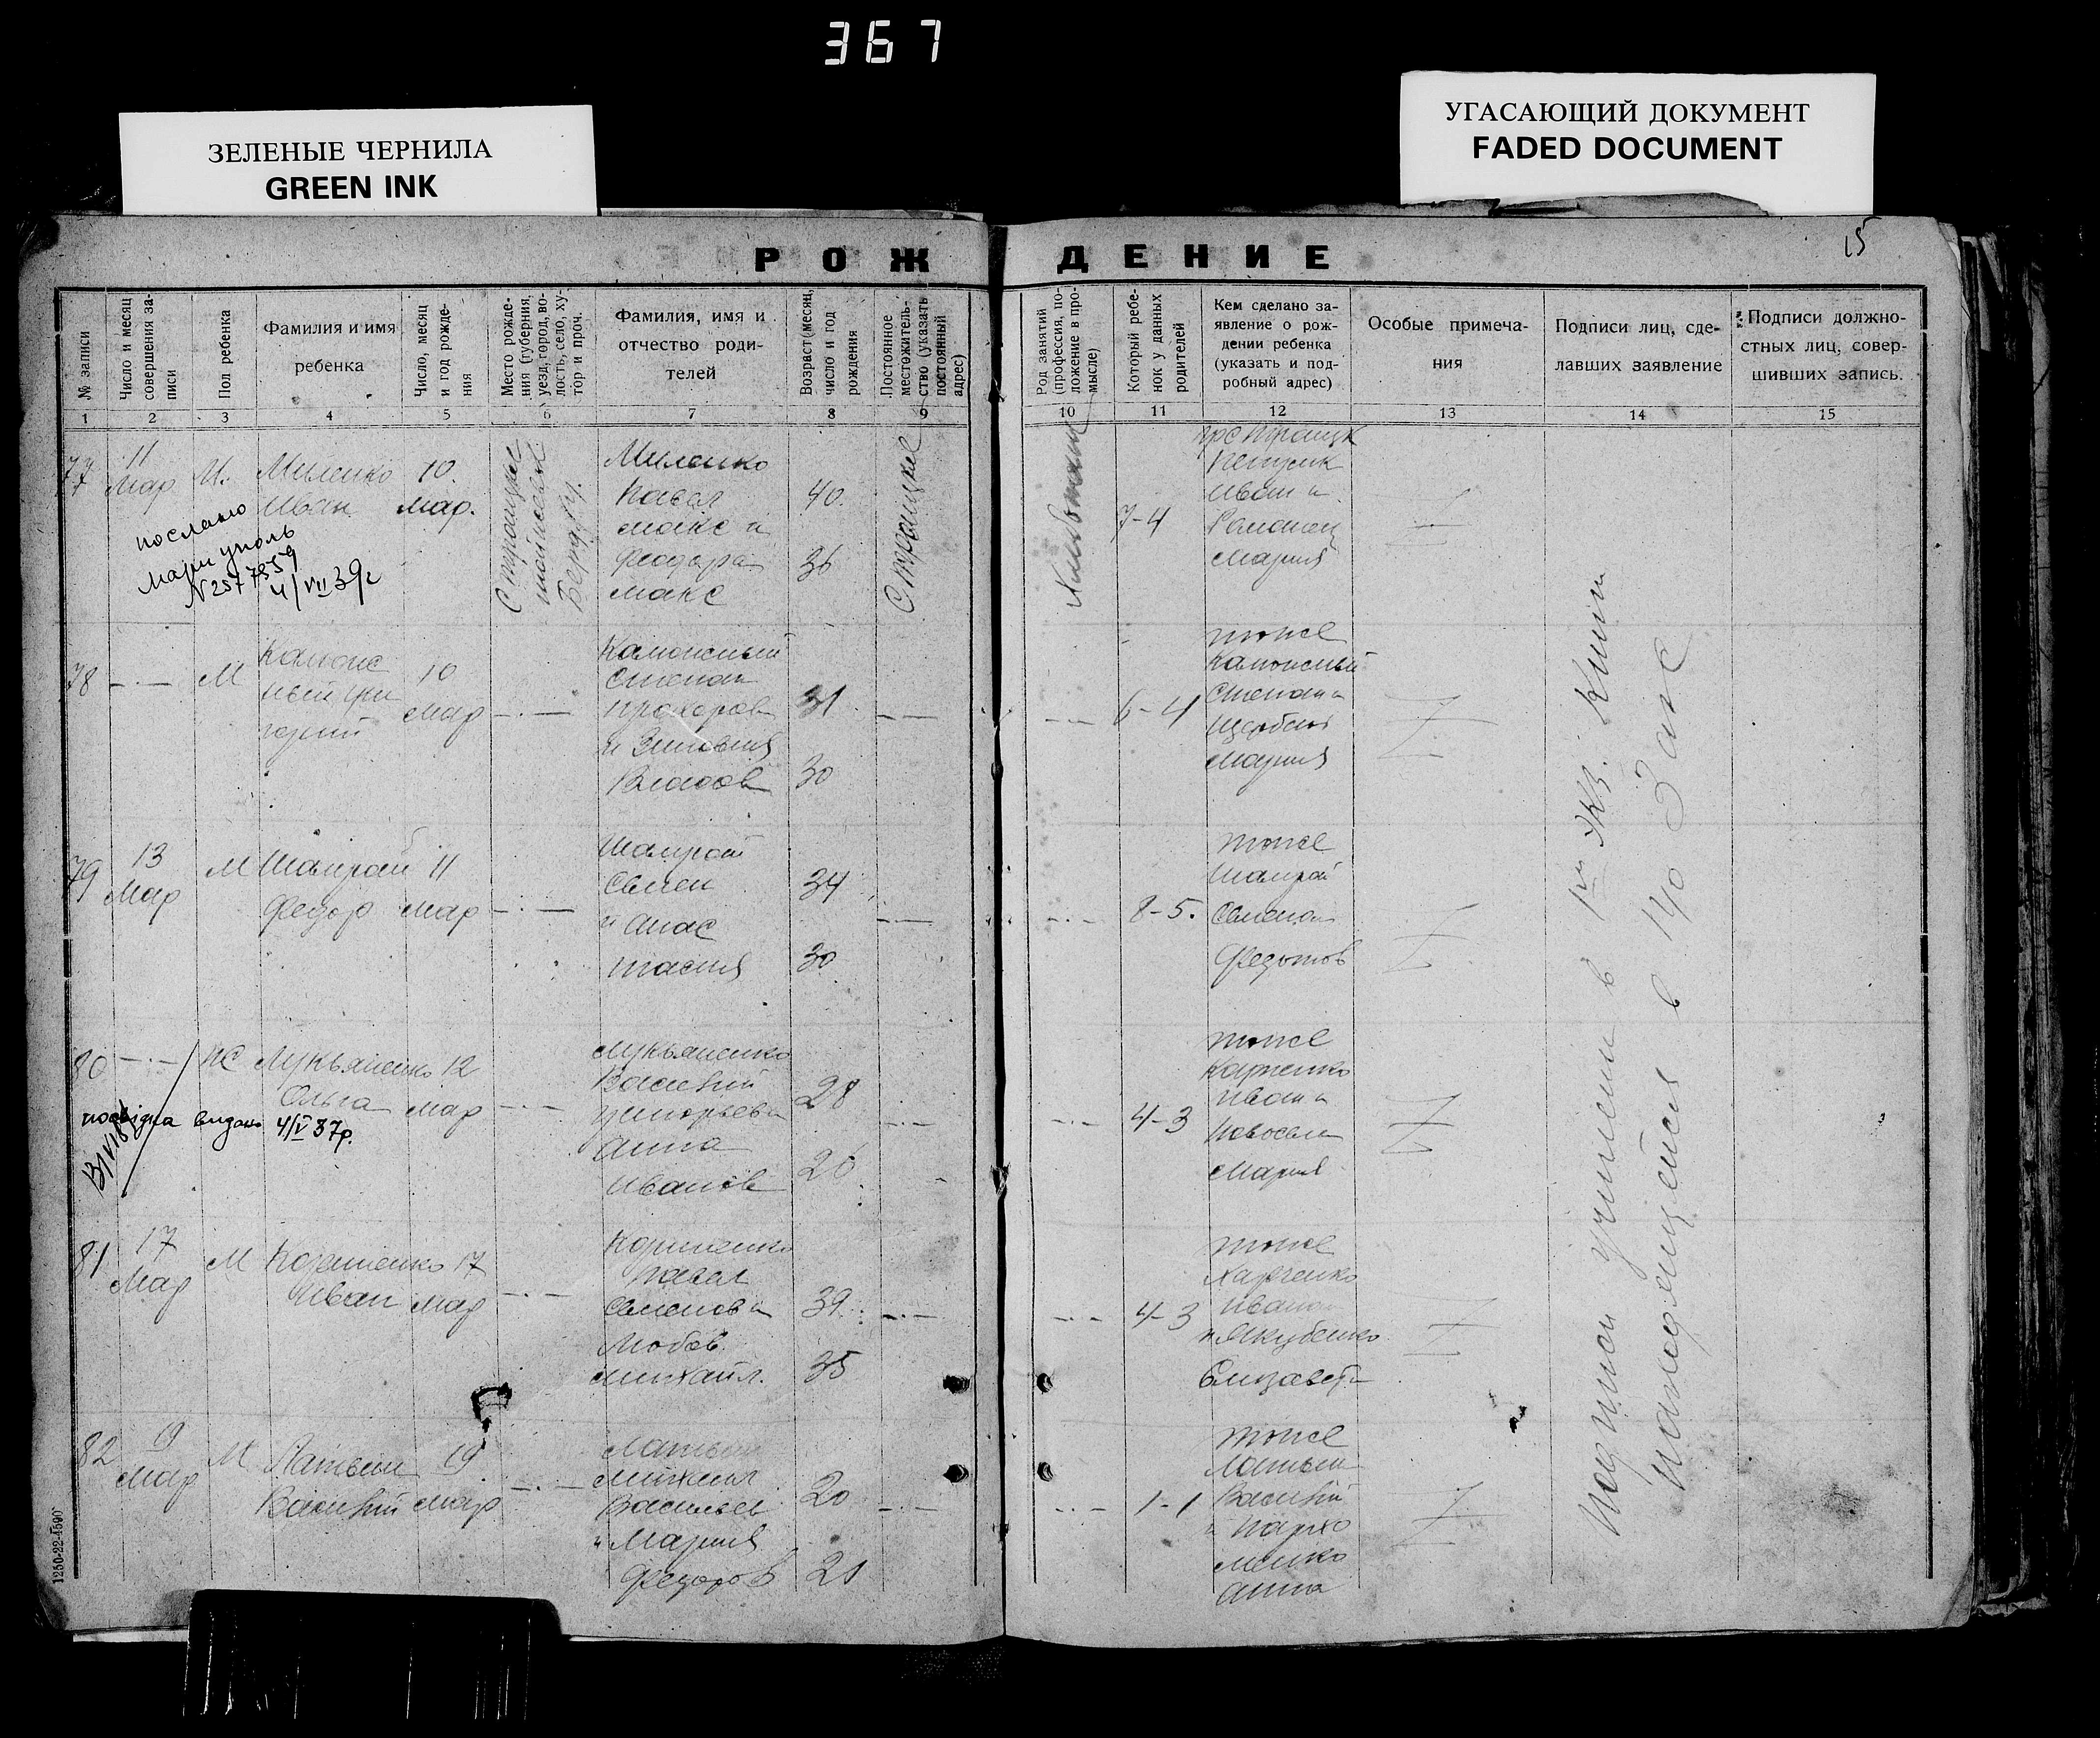 367
ЗЕЛЕНЫЕ ЧЕРНИЛА
GREEN INK
УГАСАЮЩИЙ ДОКУМЕНТ
FADED DOCUMENT
15
РОЖДЕНИЕ
№ записи
Число и месяц совершения записи
Пол ребенка
Фамилия и имя
ребенка
Число, месяц и год рождения
Место рождения (губерния, уезд, город, волость, село, хутор и проч.
Фамилия, имя и
отчество роди-
телей
Возраст (месяц, число и год рождения
Постоянное местожительство (указать постоянный адрес)
Род занятий (профессия, положение в промысле)
Который ребенок у данных родителей
Кем сделано за-
явление о рож-
дении ребенка
(указать и под-
робный адрес)
Особые примеча-
ния
Подписи лиц, сде-
лавших заявление
Подписи должно-
стных лиц, совер-
шивших запись.
1 2 3 4 5 6 7 8 9 10 11 12 13 14 15
77
11
Мар
М.
Миленко
Иван
10.
мар.
С троицкое
Берд.
Миленко
Павел
макс и
Феодора
макс
40.
36
С троицкое
Хлебопаш
7-4
Иван и
Мария
послано
Мариуполь
N 257
4/VII 39г
78
М
Калюж
ный Гри
горий
10
мар
Калюжный
Степан
Прохоров
и Зиновия
Власов
31
30
6-4
тоже
Калюжный
Степан и
Щербань
Мария
79
13
Мар
М
Шамрай
Федор
11
мар
Шамрай
Семен
и Анас
тасия
34
30
8-5.
тоже
Шамрай
Семеном
Федотов
80
ж
Лукьяненко
Ольга
12
мар
Лукьяненко
Василий
Григорьев и
Анна
Иванов
28
26
4-3
тоже
Иван и
Мария
посвідка видана 4/V 37р.
81
17
Мар
М
Корниенко
Иван
17
мар
Корниенко
Павел
Семенов и
Любов.
михайл.
39
35
4-3
тоже
Харченко
Иваном
и Якубенко
Елизавет
82
9
Мар
М
Латыш
Василий
19
мар
Латыш
Михаил
Васильев
и Мария
Федоров
20
21
1-1
тоже
Латыш
Василий
и Пархо
менко
Анна
Подписи учинены в 1м экз. книги
находящейся в Загс
1250-22-4590